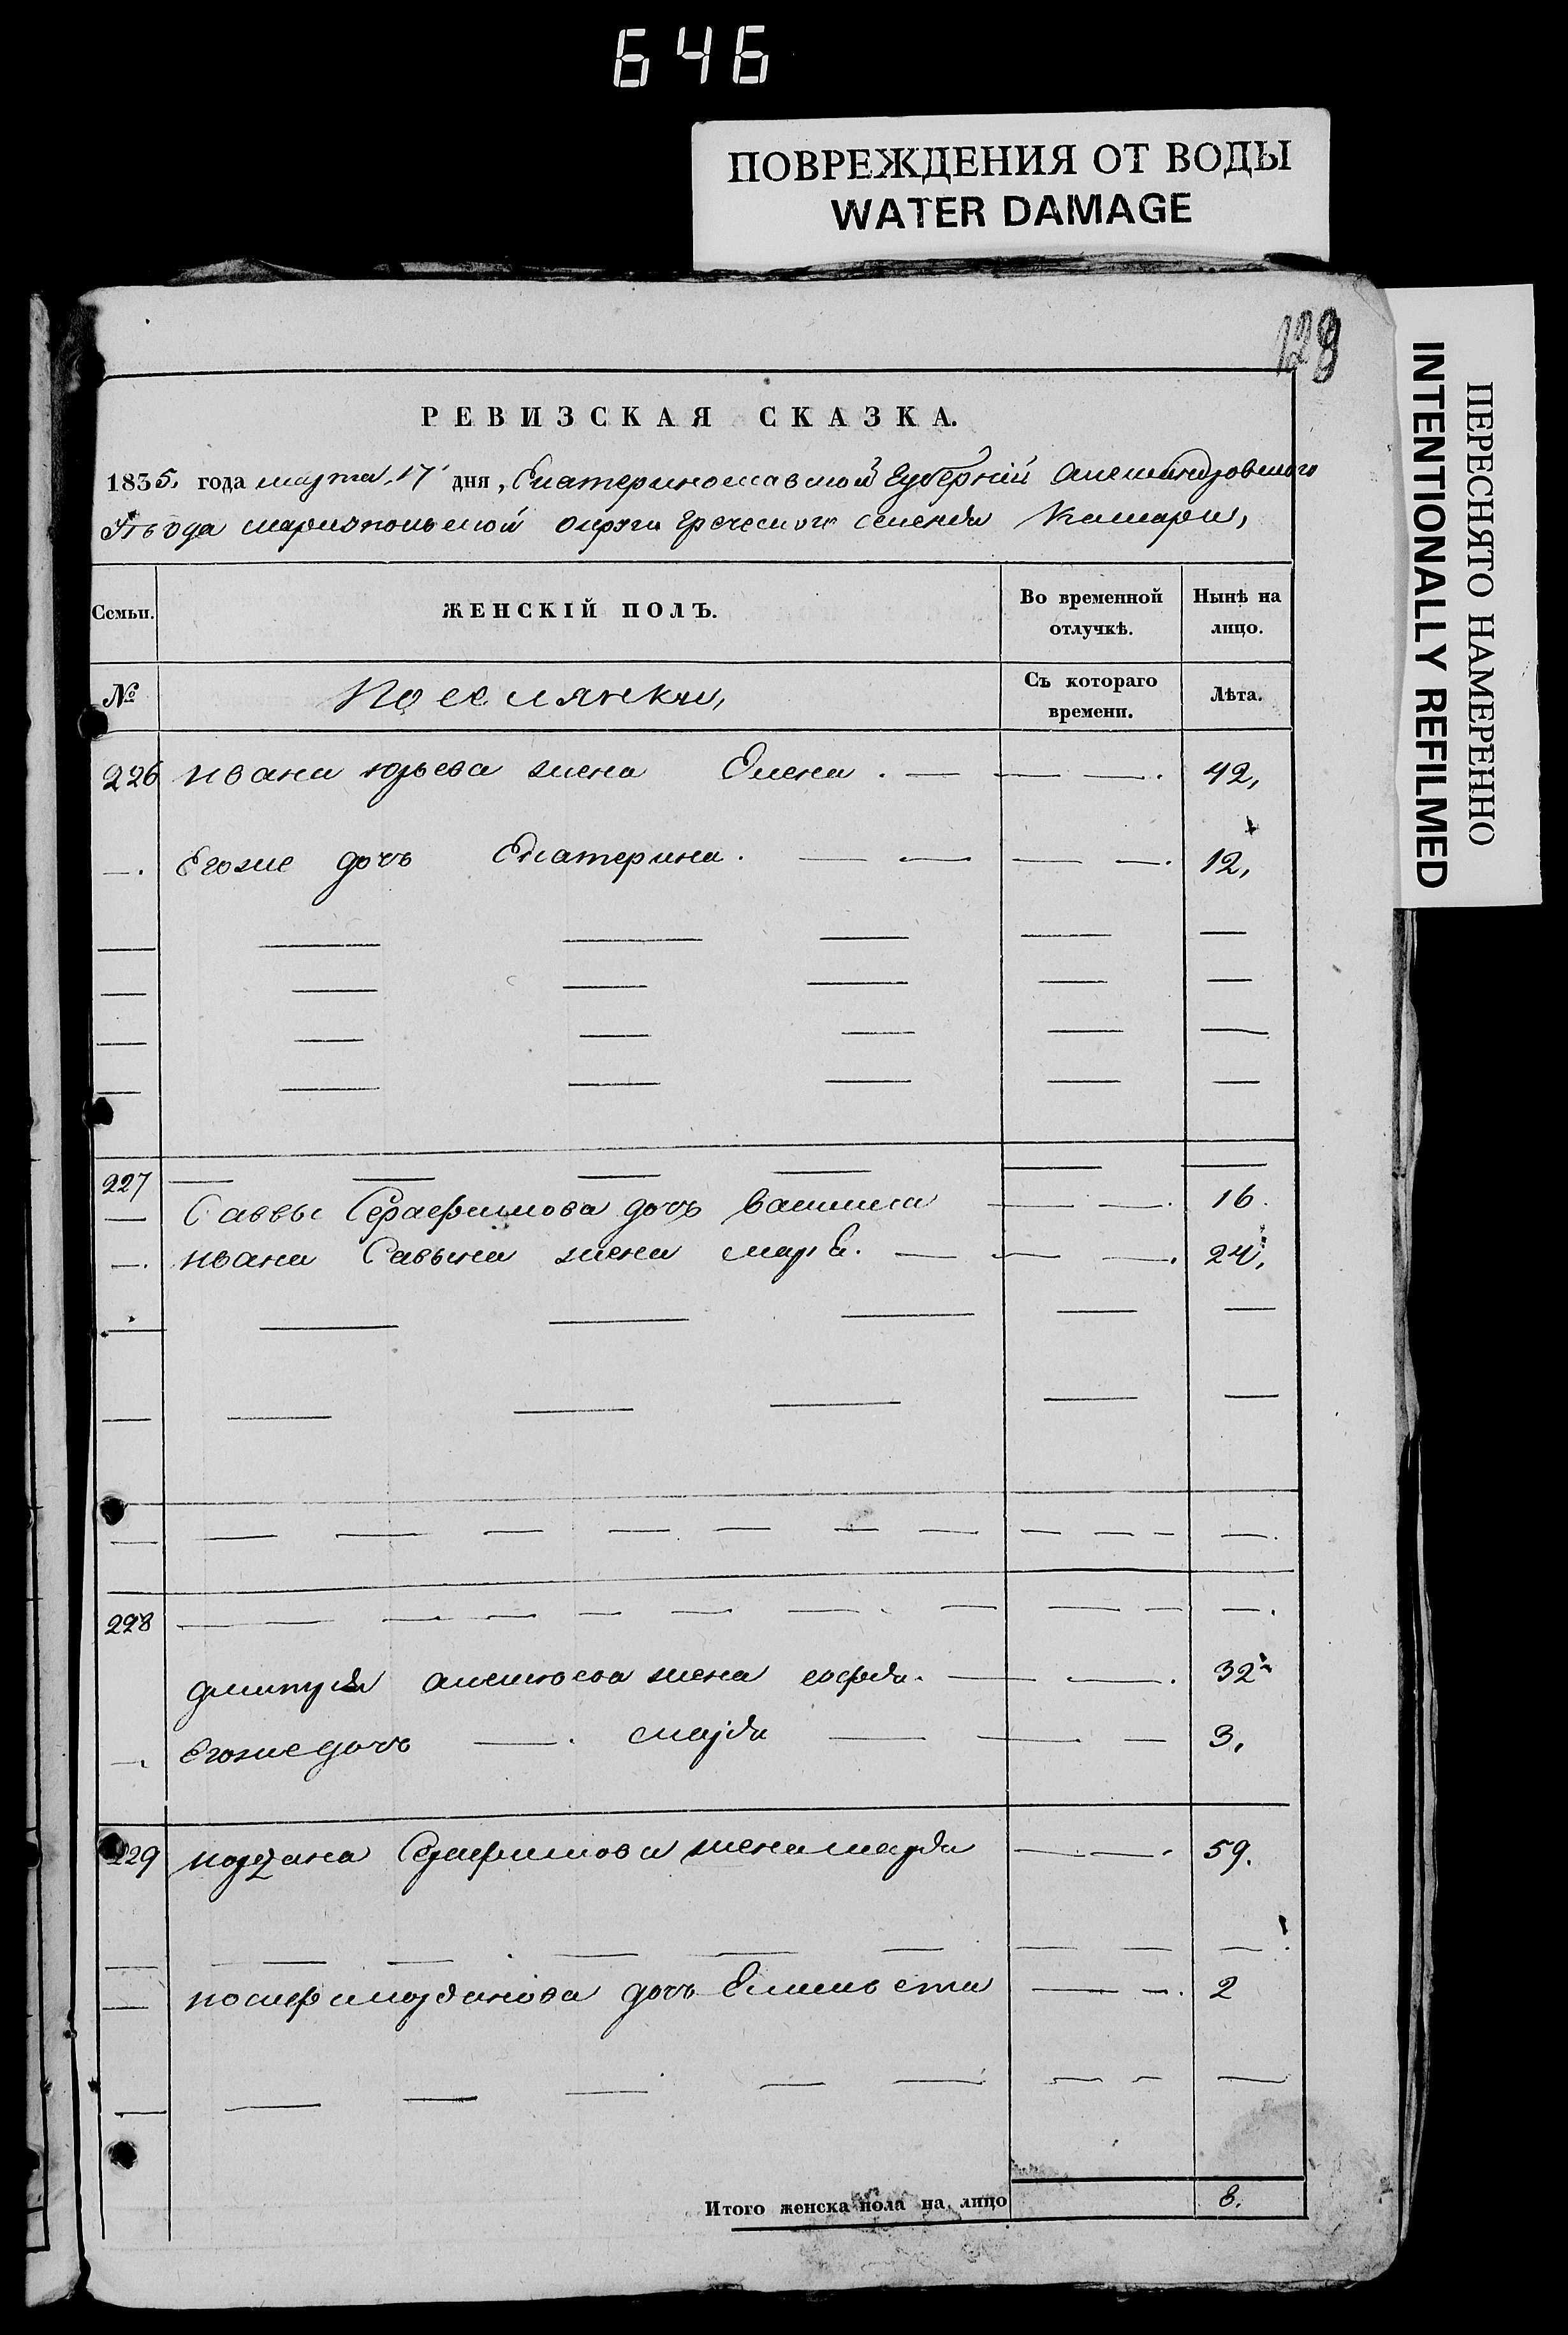 646
ПОВРЕЖДЕНИЯ ОТ ВОДЫ
WATER DAMAGE
ПЕРЕСНЯТО НАМЕРЕННО
INTENTIONALLY REFILMED
129
РЕВИЗСКАЯ СКАЗКА.
1835, года марта, 17 дня, Екатеринославской Губерніи Александровского
Уѣзда мариупольской округи Греческого селенія Камари,
Семьи. ЖЕНСКІЙ ПОЛЪ. Во временной отлучкѣ. Нынѣ на лицо.
№ Поселянки, Съ котораго времени. Лѣта.
226 ивана юрьева жена Елена . — — — . 42,
— . Егоже дочь Екатерина . — — — — . 12,
227 — — — — — —
— Саввы Серафимова дочь василиса — — . 16.
— . ивана Савина жена — — — . 24,
228 — — — — — — — — — — .
дмитрія алексеева жена софія . — — . 32
— . Егоже дочь — . марія — — — 3,
229 Серафимова жена марія — — . 59.
— дочь Елисавета — — . 2
Итого женска пола на лицо 8.